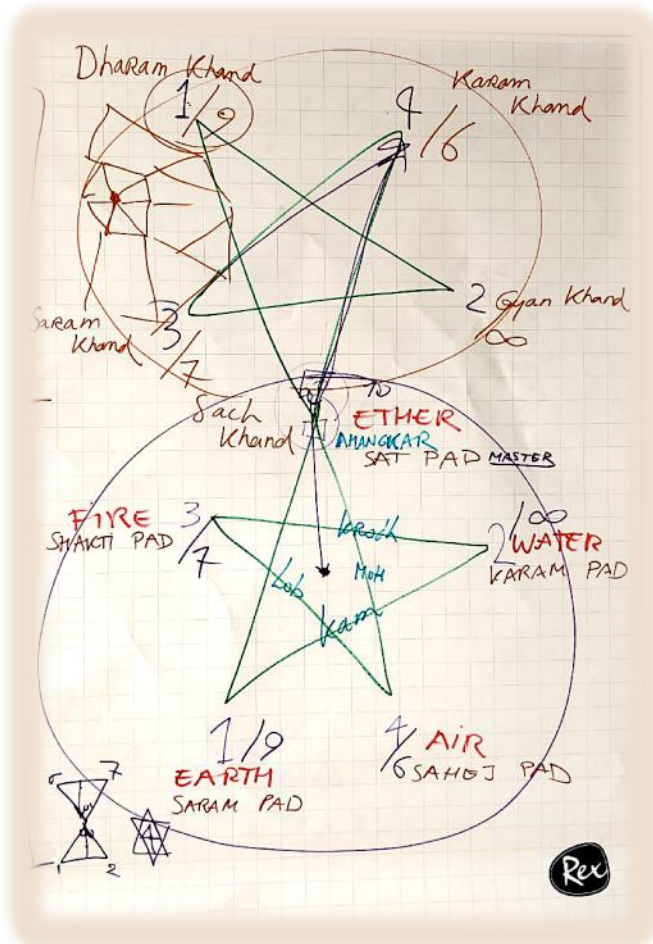 Dharam Khand
1/9
4/6
Karam
Khand
2 Gyan Khand
∞
Saram
Khand
3/7
Sach
Khand
10
ETHER
AHANGKAR
SAT PAD MASTER
FIRE 3/7
SHAKTI PAD
krodh
2/∞
WATER
KARAM PAD
Lob
MOH
kam
1/9
EARTH
SARAM PAD
4/6 AIR
SAHEJ PAD
6 7
1 2
Rex